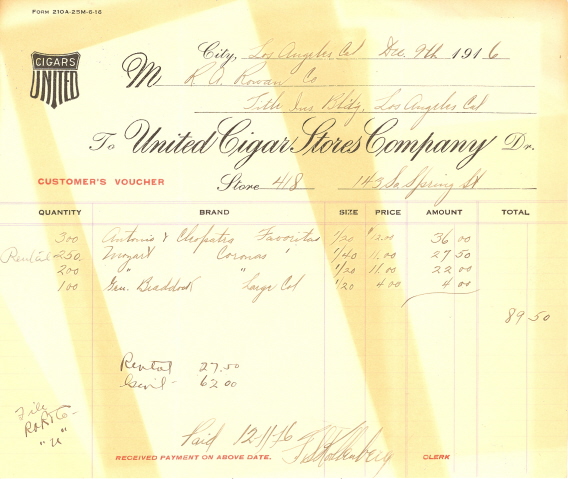 FORM 210A-25M-6-16
CIGARS
UNITED
City, Los Angeles Cal Dec. 9th 1916
M R. A. Rowan Co
Title Ins Bldg, Los Angeles Cal
To United Cigar Stores Company Dr.
CUSTOMER'S VOUCHER
Store 418 143 So Spring St
QUANTITY BRAND SIZE PRICE AMOUNT TOTAL
300 Antonio & Cleopatra Favoritas 1/20 12.00 36 00
Rental 250 Mozart Coronas " 1/40 11.00 27 50
200 " 1/20 11.00 22 00
100 Gen. Braddock Large Col 1/20 4 00 4 00
89 50
Rental 27.50
62 00
File
"
Paid 12-11-16
RECEIVED PAYMENT ON ABOVE DATE. CLERK